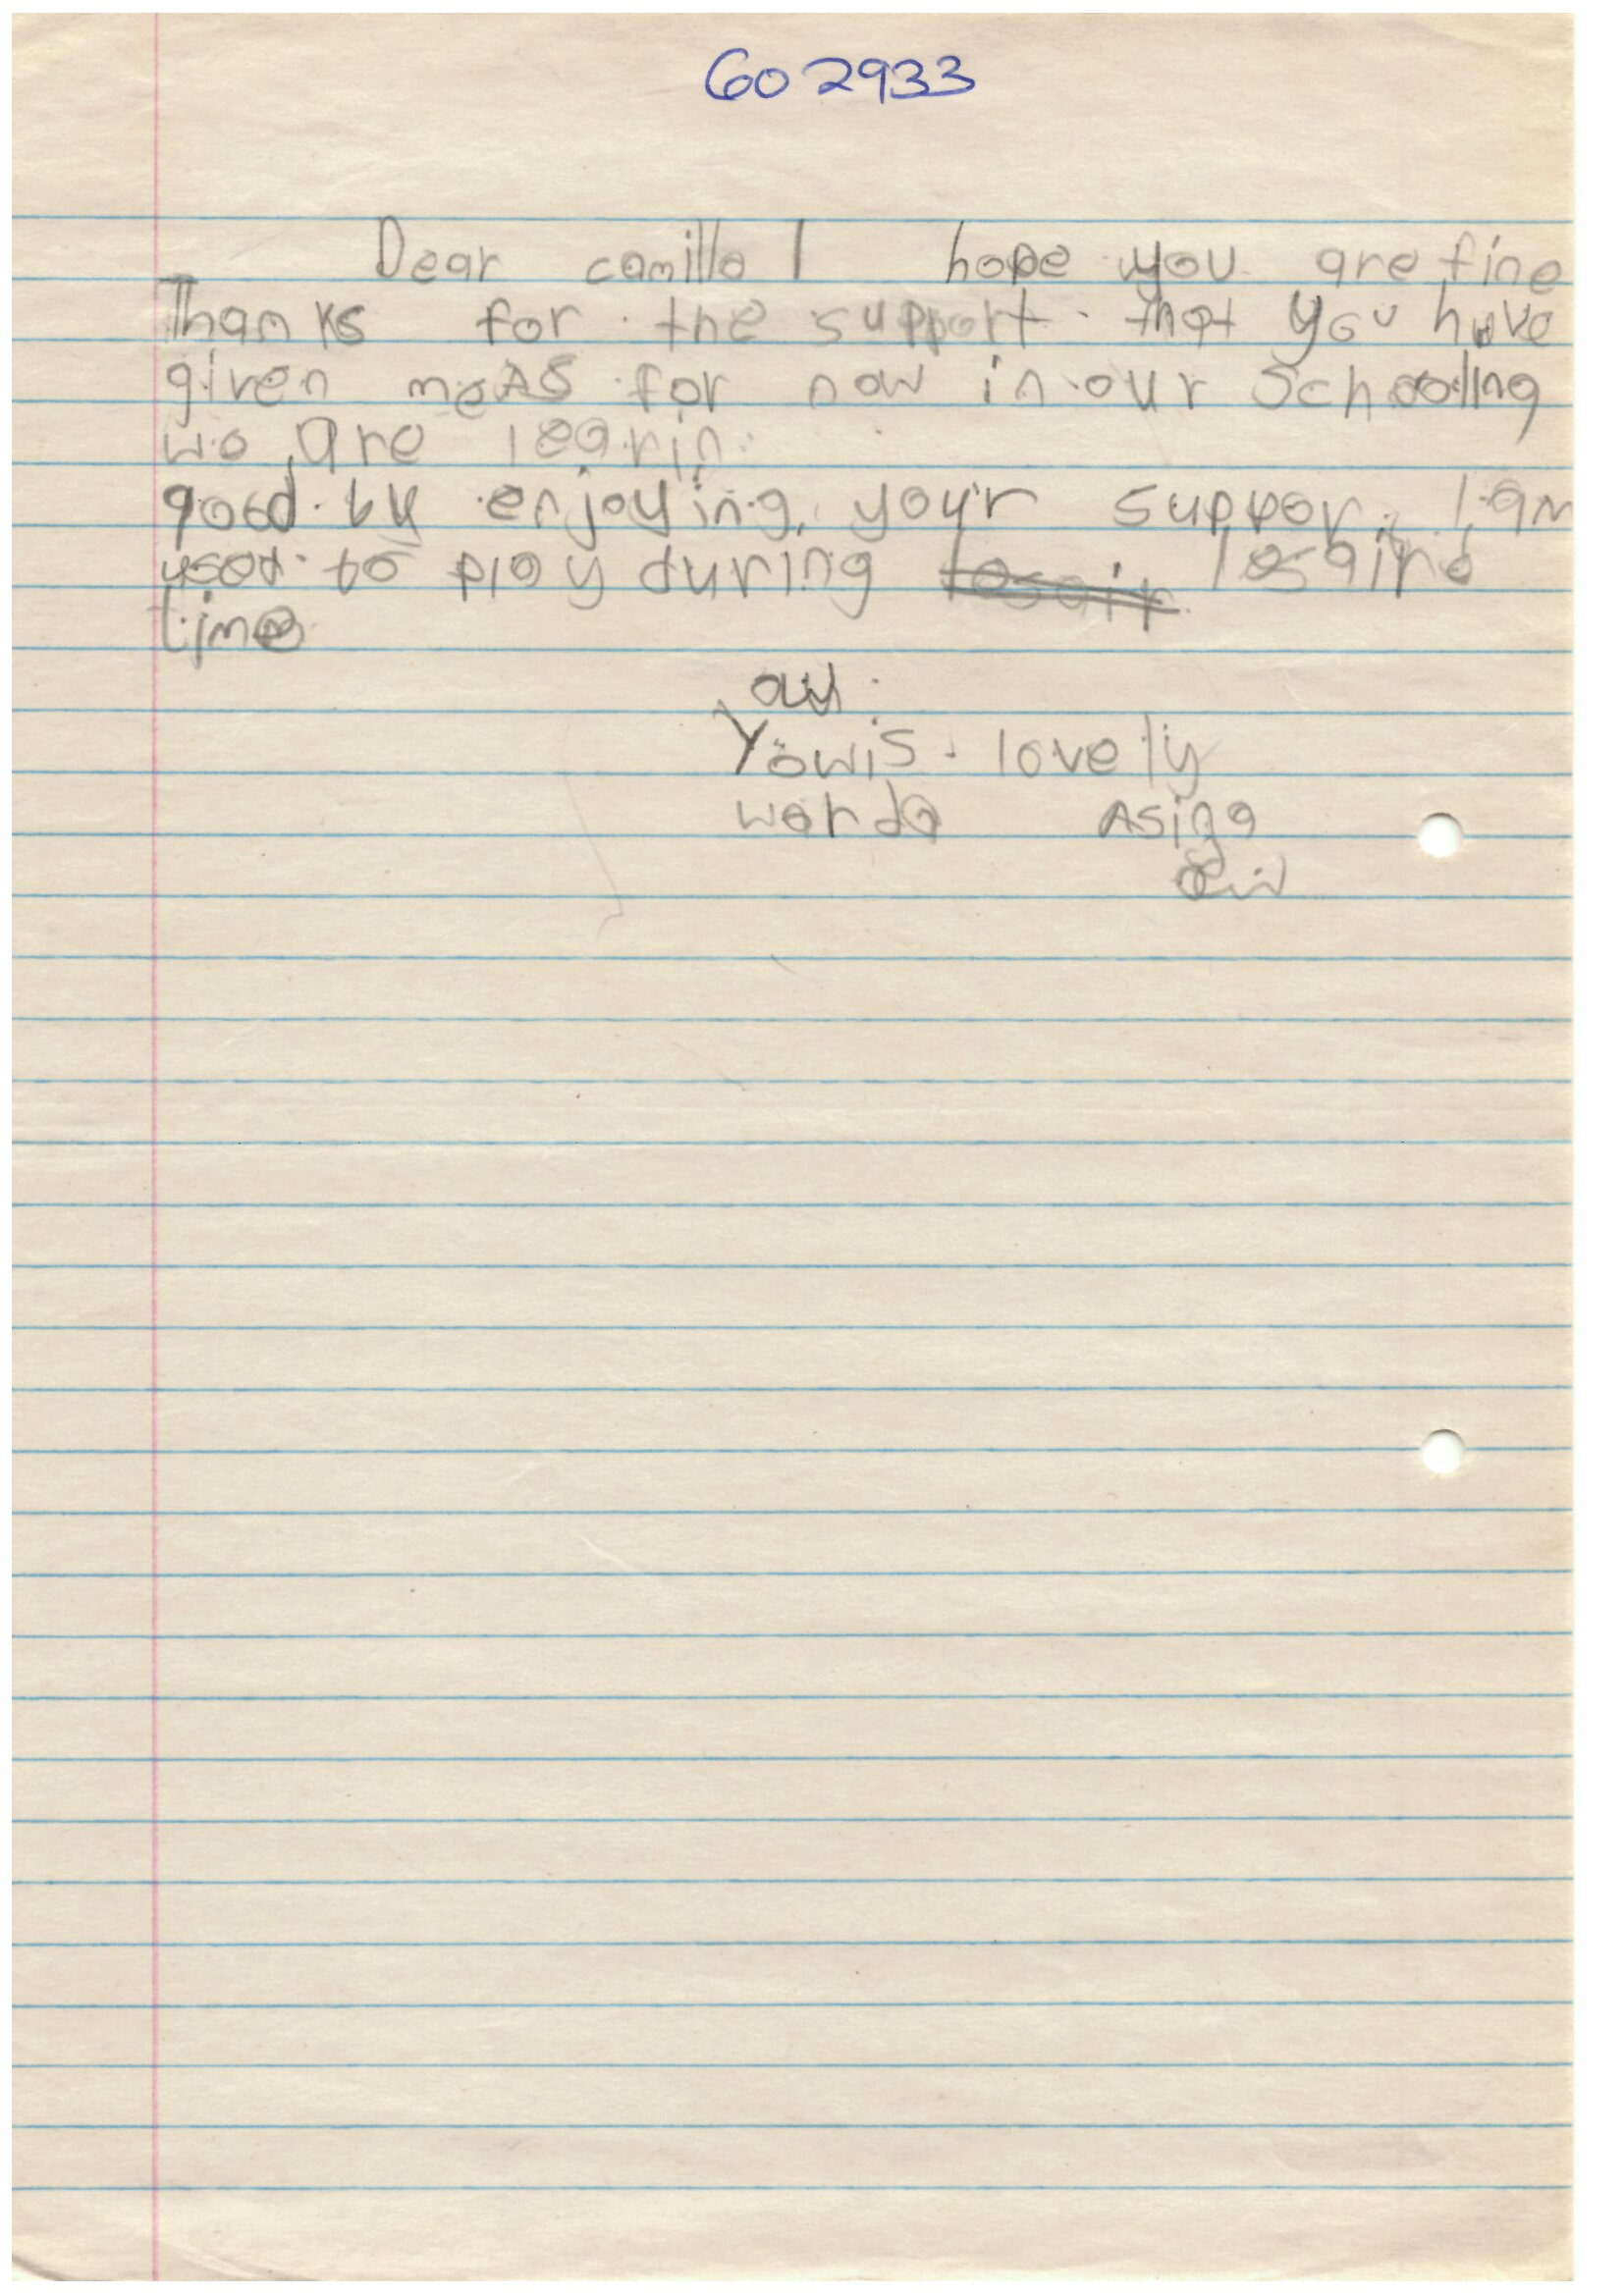 602933
Dear camilla I hope you are fine
Thanks for the support that you have
given me AS for now in our Schooling
we are learin
good by enjoying your suppor. I am
used to play during lesaire
time
Yowis lovely
warda Asiza